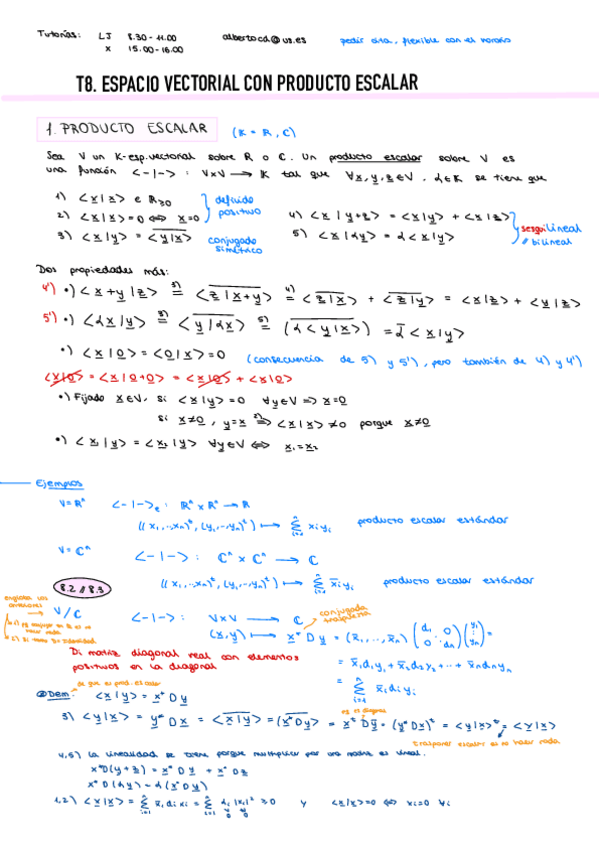 Tutorías: LJ 8.30 - 11.00 albertocd@us.es pedir cita, flexible con el horario
X 15.00-16.00
T8. ESPACIO VECTORIAL CON PRODUCTO ESCALAR
1. PRODUCTO ESCALAR (K = R, C)
Sea V un K-esp. vectorial sobre R o C. Un producto escalar sobre V es
una función <-|-> : V×V → K tal que ∀x, y, z ∈ V, α ∈ K se tiene que
1) <x|x> ∈ R≥0 definido
2) <x|x> = 0 ⇔ x = 0 positivo 4) <x|y+z> = <x|y> + <x|z> sesquilineal
3) <x|y> = \overline{<y|x>} conjugado simétrico 5) <x|αy> = α<x|y> bilineal
Dos propiedades más:
4') •) <x+y|z> =^{3)} \overline{<z|x+y>} =^{4)} \overline{<z|x>} + \overline{<z|y>} = <x|z> + <y|z>
5') •) <αx|y> =^{3)} \overline{<y|αx>} =^{5)} \overline{(α<y|x>)} = \overline{α}<x|y>
•) <x|0> = <0|x> = 0 (consecuencia de 5) y 5'), pero también de 4) y 4')
<x|0> = <x|0+0> = <x|0> + <x|0>
•) Fijado x∈V, si <x|y> = 0 ∀y∈V ⇒ x = 0
si x≠0, y=x ⇒^{2)} <x|x> ≠ 0 porque x≠0
•) <x₁|y> = <x₂|y> ∀y∈V ⇔ x₁ = x₂
Ejemplos
V = Rⁿ <-|->ₑ : Rⁿ × Rⁿ → R
((x₁,...,xₙ)ᵗ, (y₁,...,yₙ)ᵗ) ↦ Σ_{i=1}^{n} xᵢyᵢ producto escalar estándar
V = Cⁿ <-|-> : Cⁿ × Cⁿ → C
8.2 // 8.3 ((x₁,...,xₙ)ᵗ, (y₁,...,yₙ)ᵗ) ↦ Σ_{i=1}^{n} x̄ᵢyᵢ producto escalar estándar
engloba los anteriores → V/C <-|-> : V×V → C conjugada traspuesta
(x,y) ↦ x* D y = (x̄₁,...,x̄ₙ) (d₁ 0 ⋱ 0 dₙ) (y₁ ⋮ yₙ) =
D: matriz diagonal real con elementos
positivos en la diagonal
= x̄₁d₁y₁ + x̄₂d₂y₂ + ... + x̄ₙdₙyₙ
= Σ_{i=1}^{n} x̄ᵢdᵢyᵢ
de que es prod. escalar
Dem: <x|y> = x* D y
es diagonal
3) <y|x> = y* D x = \overline{<x|y>} = \overline{(x* D y)} = xᵗ D ȳ = (y* D x)ᵗ = <y|x>ᵗ = <y|x>
trasponer escalar es no hacer nada
4,5) La linealidad se tiene porque multiplicar por una matriz es lineal.
x*D(y+z) = x* D y + x* D z
x* D(αy) = α(x* D y)
1,2) <x|x> = Σ_{i=1}^{n} x̄ᵢdᵢxᵢ = Σ_{i=1}^{n} dᵢ|xᵢ|² ≥ 0 y <x|x> = 0 ⇔ xᵢ=0 ∀i